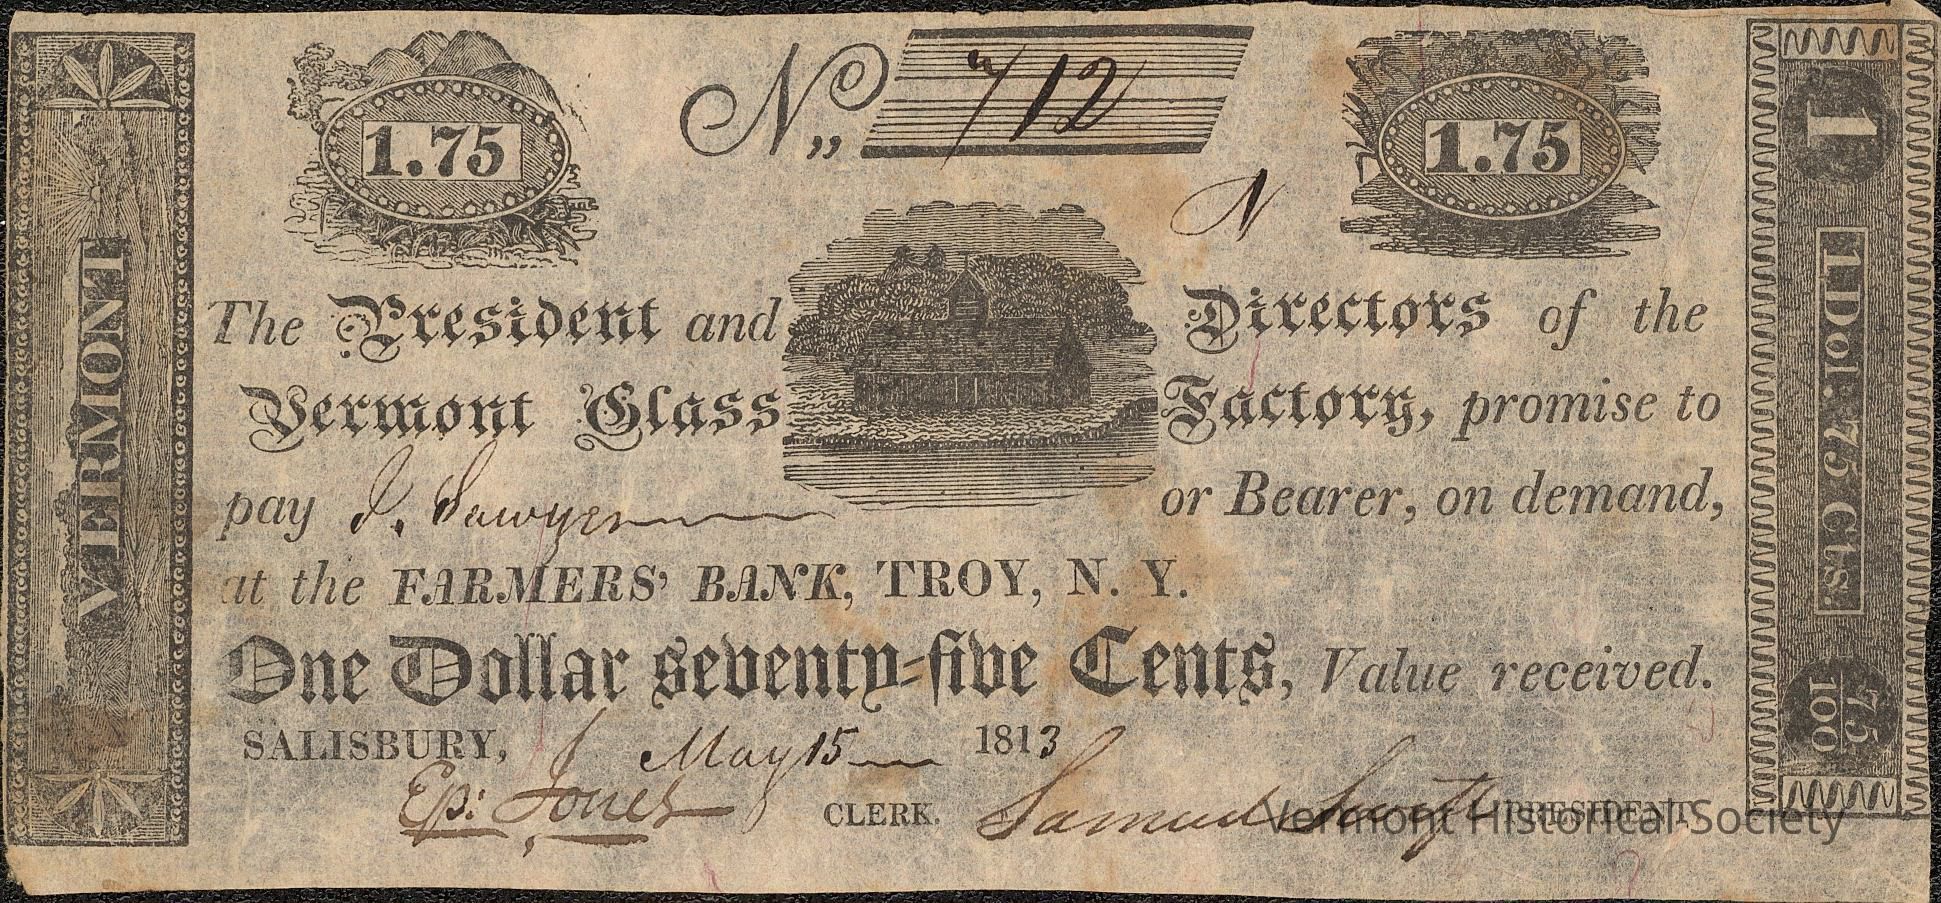 VERMONT
1.75
No,, 712
1.75
N
The President and Directors of the
Vermont Glass Factory, promise to
pay J. Sawyer or Bearer, on demand,
at the FARMERS' BANK, TROY, N. Y.
One Dollar seventy-five Cents, Value received.
SALISBURY, May 15 1813
Ep: Jones CLERK. Samuel Swift PRESIDENT.
1
1 Dol. 75 Cts.
75
100
Vermont Historical Society